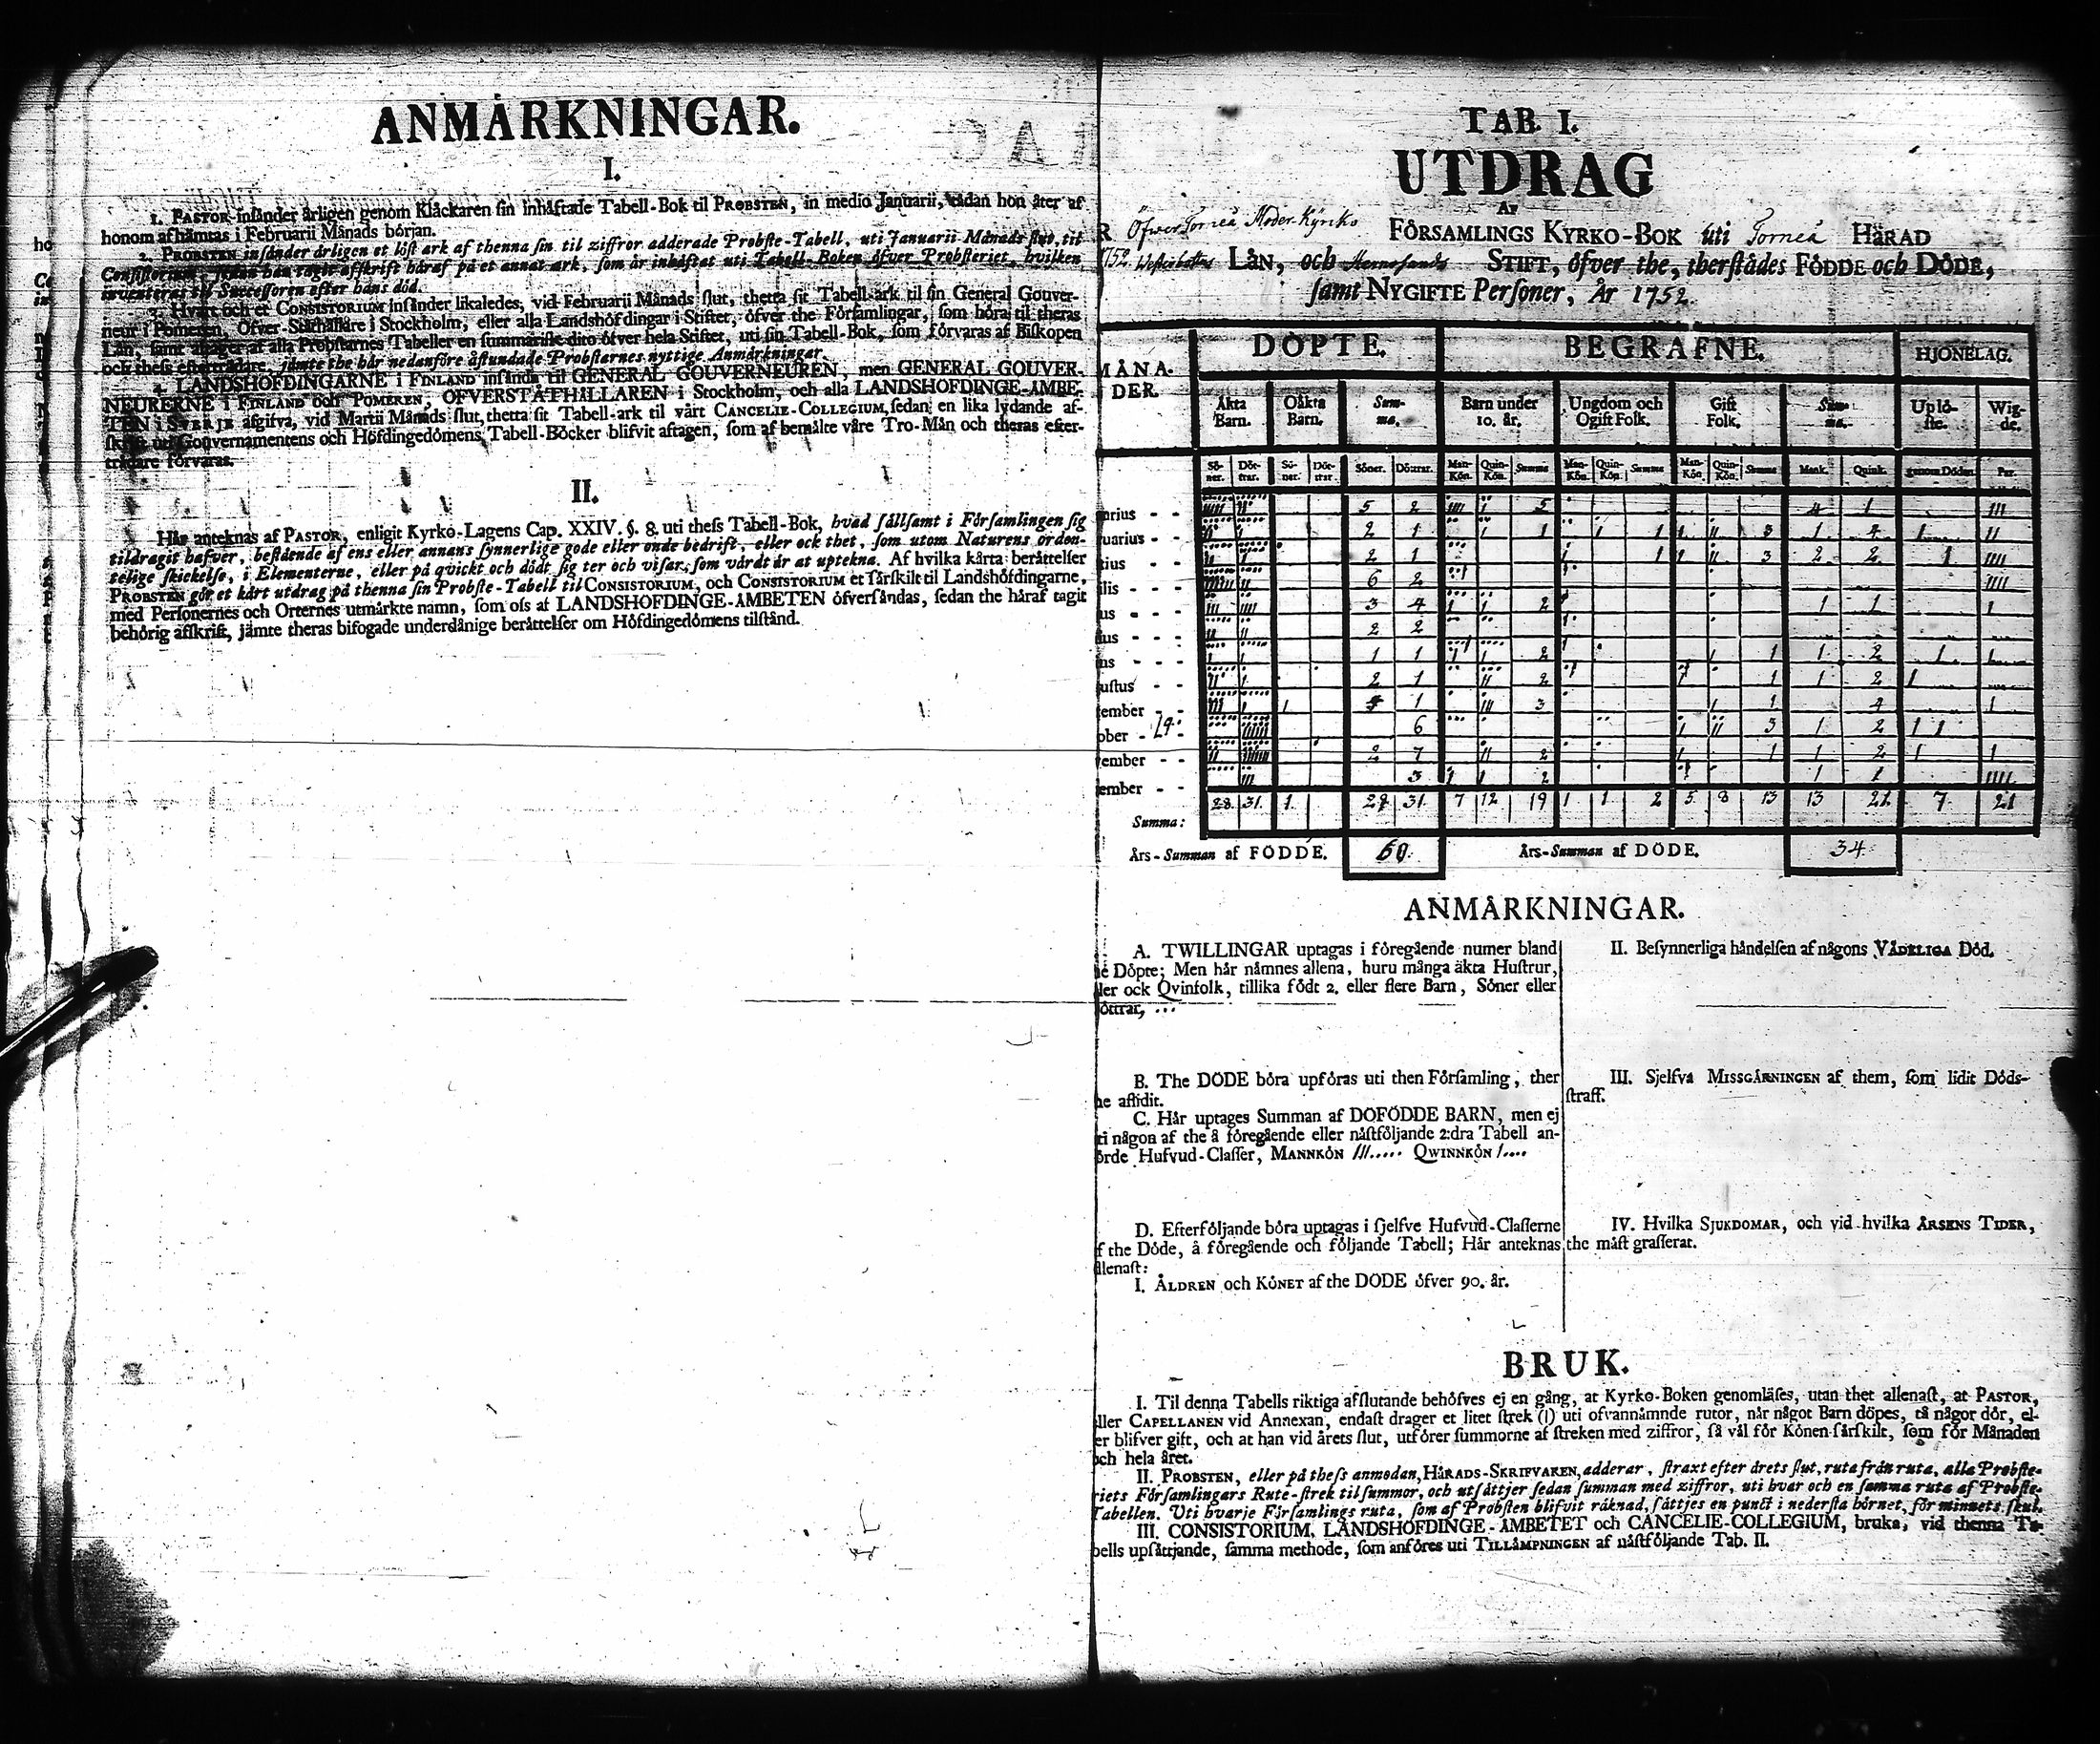 ANMÄRKNINGAR.
I.
1. PASTOR insänder årligen genom Klåckaren sin inhäftade Tabell-Bok til PROBSTEN, in medio Januarii, sädan hon åter af
honom afhämtas i Februarii Månads början.
2. PROBSTEN insänder årligen et löst ark af thenna sin til ziffror adderade Probste-Tabell, uti Januarii Månads slut, til
Consistorium, sedan han tagit afskrift häraf på et annat ark, som är inhäftat uti Tabell-Boken öfver Probsteriet, hvilken
inventeras til Successoren efter hans död.
3. Hvart och et CONSISTORIUM insänder likaledes, vid Februarii Månads slut, thetta sit Tabell-ark til sin General Gouver-
neur i Pomeren, Öfver-Ståthållare i Stockholm, eller alla Landshöfdingar i Stiftet, öfver the Församlingar, som höra til theras
Län, samt aftager af alla Probstarnes Tabeller en summarisk dito öfver hela Stiftet, uti sin Tabell-Bok, som förvaras af Biskopen
och thess efterträdare, jämte the här nedanföre åstundade Probstarnes nyttige Anmärkningar.
4. LANDSHÖFDINGARNE i FINLAND insända til GENERAL GOUVERNEUREN, men GENERAL GOUVER-
NEURERNE i FINLAND och POMEREN, ÖFVERSTÅTHÅLLAREN i Stockholm, och alla LANDSHÖFDINGE-ÄMBE-
TEN i SVERJE afgifva, vid Martii Månads slut, thetta sit Tabell-ark til vårt CANCELIE-COLLEGIUM, sedan en lika lydande af-
skrift uti Gouvernamentens och Höfdingedömens Tabell-Böcker blifvit aftagen, som af bemälte våre Tro-Män och theras efter-
trädare förvaras.
II.
Här anteknas af PASTOR, enligit Kyrko-Lagens Cap. XXIV. §. 8. uti thess Tabell-Bok, hvad sällsamt i Församlingen sig
tildragit hafver, bestående af ens eller annans synnerlige gode eller onde bedrift, eller ock thet, som utom Naturens orden-
telige skickelse, i Elementerne, eller på qvickt och dödt sig ter och visar, som värdt är at uptekna. Af hvilka kårta berättelser
PROBSTEN gör et kårt utdrag på thenna sin Probste-Tabell til CONSISTORIUM, och CONSISTORIUM et särskilt til Landshöfdingarne,
med Personernes och Orternes utmärkte namn, som oss af LANDSHÖFDINGE-ÄMBETEN öfversändas, sedan the häraf tagit
behörig afskrift, jämte theras bifogade underdånige berättelser om Höfdingedömens tilstånd.
TAB. I.
UTDRAG
AF
R Öfwer Torneå Moder Kyrko FÖRSAMLINGS KYRKO-BOK uti Torneå HÄRAD
1752. Westerbottns Län, och Hernosands STIFT, öfver the, therstädes FÖDDE och DÖDE,
samt NYGIFTE Personer, År 1752.
MÅNA-
DER. DÖPTE. BEGRAFNE. HJONELAG.
Äkta Barn. Oäkta Barn. Summa. Barn under 10. år. Ungdom och Ogift Folk. Gift Folk. Summa. Uplöste. Wigde.
Söner. Döttrar. Söner. Döttrar. Söner. Döttrar. Man-Kön. Quin-Kön. Summa Man-Kön. Quin-Kön. Summa Man-Kön Quin-Kön. Summa Mank. Quink. genom Döden. Par.
arius - - 5 2 5 4 1 III
uarius - - 2 1 1 1 3 1 4 II
tius - - 2 1 1 3 2 2 IIII
ilis - - 6 2 IIII
us - - 3 4 2 1 1 I
ius - - 2 2
us - - - 1 1 2 1 1 2 I
ustus - - 2 1 2 1 1 2
ember - - 1 3 1 I
ober - 6 3 1 2
vember - - 2 7 2 1 1 2 I
ember - - 3 2 1 IIII
Summa: 28. 31. 1. 29 31. 7 12 19 1 1 2 5 8 13 13 21 7 21
Års-Summan af FÖDDE. 60. Års-Summan af DÖDE. 34.
ANMÄRKNINGAR.
A. TWILLINGAR uptagas i föregående numer bland
e Döpte; Men här nämnes allena, huru många äkta Hustrur,
ler ock Qvinfolk, tillika födt 2. eller flere Barn, Söner eller
öttrar, ...
B. The DÖDE böra upföras uti then Församling, ther
he aflidit.
C. Här uptages Summan af DÖFÖDDE BARN, men ej
ti någon af the å föregående eller nästföljande 2:dra Tabell an-
örde Hufvud-Classer, MANNKÖN ///..... QWINNKÖN /....
D. Efterföljande böra uptagas i sjelfve Hufvud-Classerne
f the Döde, å föregående och följande Tabell; Här anteknas
allenast:
I. ÅLDREN och KÖNET af the DÖDE öfver 90. år.
II. Besynnerliga händelsen af någons VÅDELIGA Död.
III. Sjelfva MISSGÄRNINGEN af them, som lidit Döds-
straff.
IV. Hvilka SJUKDOMAR, och vid hvilka ÅRSENS TIDER,
the mäst grasserat.
BRUK.
I. Til denna Tabells riktiga afslutande behöfves ej en gång, at Kyrko-Boken genomläses, utan thet allenast, at PASTOR,
ller CAPELLANEN vid Annexan, endast drager et litet strek (I) uti ofvannämnde rutor, når något Barn döpes, tå någor dör, el-
er blifver gift, och at han vid årets slut, utförer summorne af streken med ziffror, så väl för Könen särskilt, som för Månaden
och hela året.
II. PROBSTEN, eller på thess anmodan, HÄRADS-SKRIFVAREN, adderar, straxt efter årets slut, ruta från ruta, alla Probste-
riets Församlingars Rute-strek til summor, och utsättjer sedan summan med ziffror, uti hvar och en samma ruta af Probste-
Tabellen. Uti hvarje Församlings ruta, som af Probsten blifvit räknad, sättjes en punct i nedersta hörnet, för minnets skul.
III. CONSISTORIUM, LANDSHÖFDINGE-ÄMBETET och CANCELIE-COLLEGIUM, bruka, vid thenna Ta-
bells upsättjande, samma methode, som anföres uti TILLÄMPNINGEN af nästföljande Tab. II.